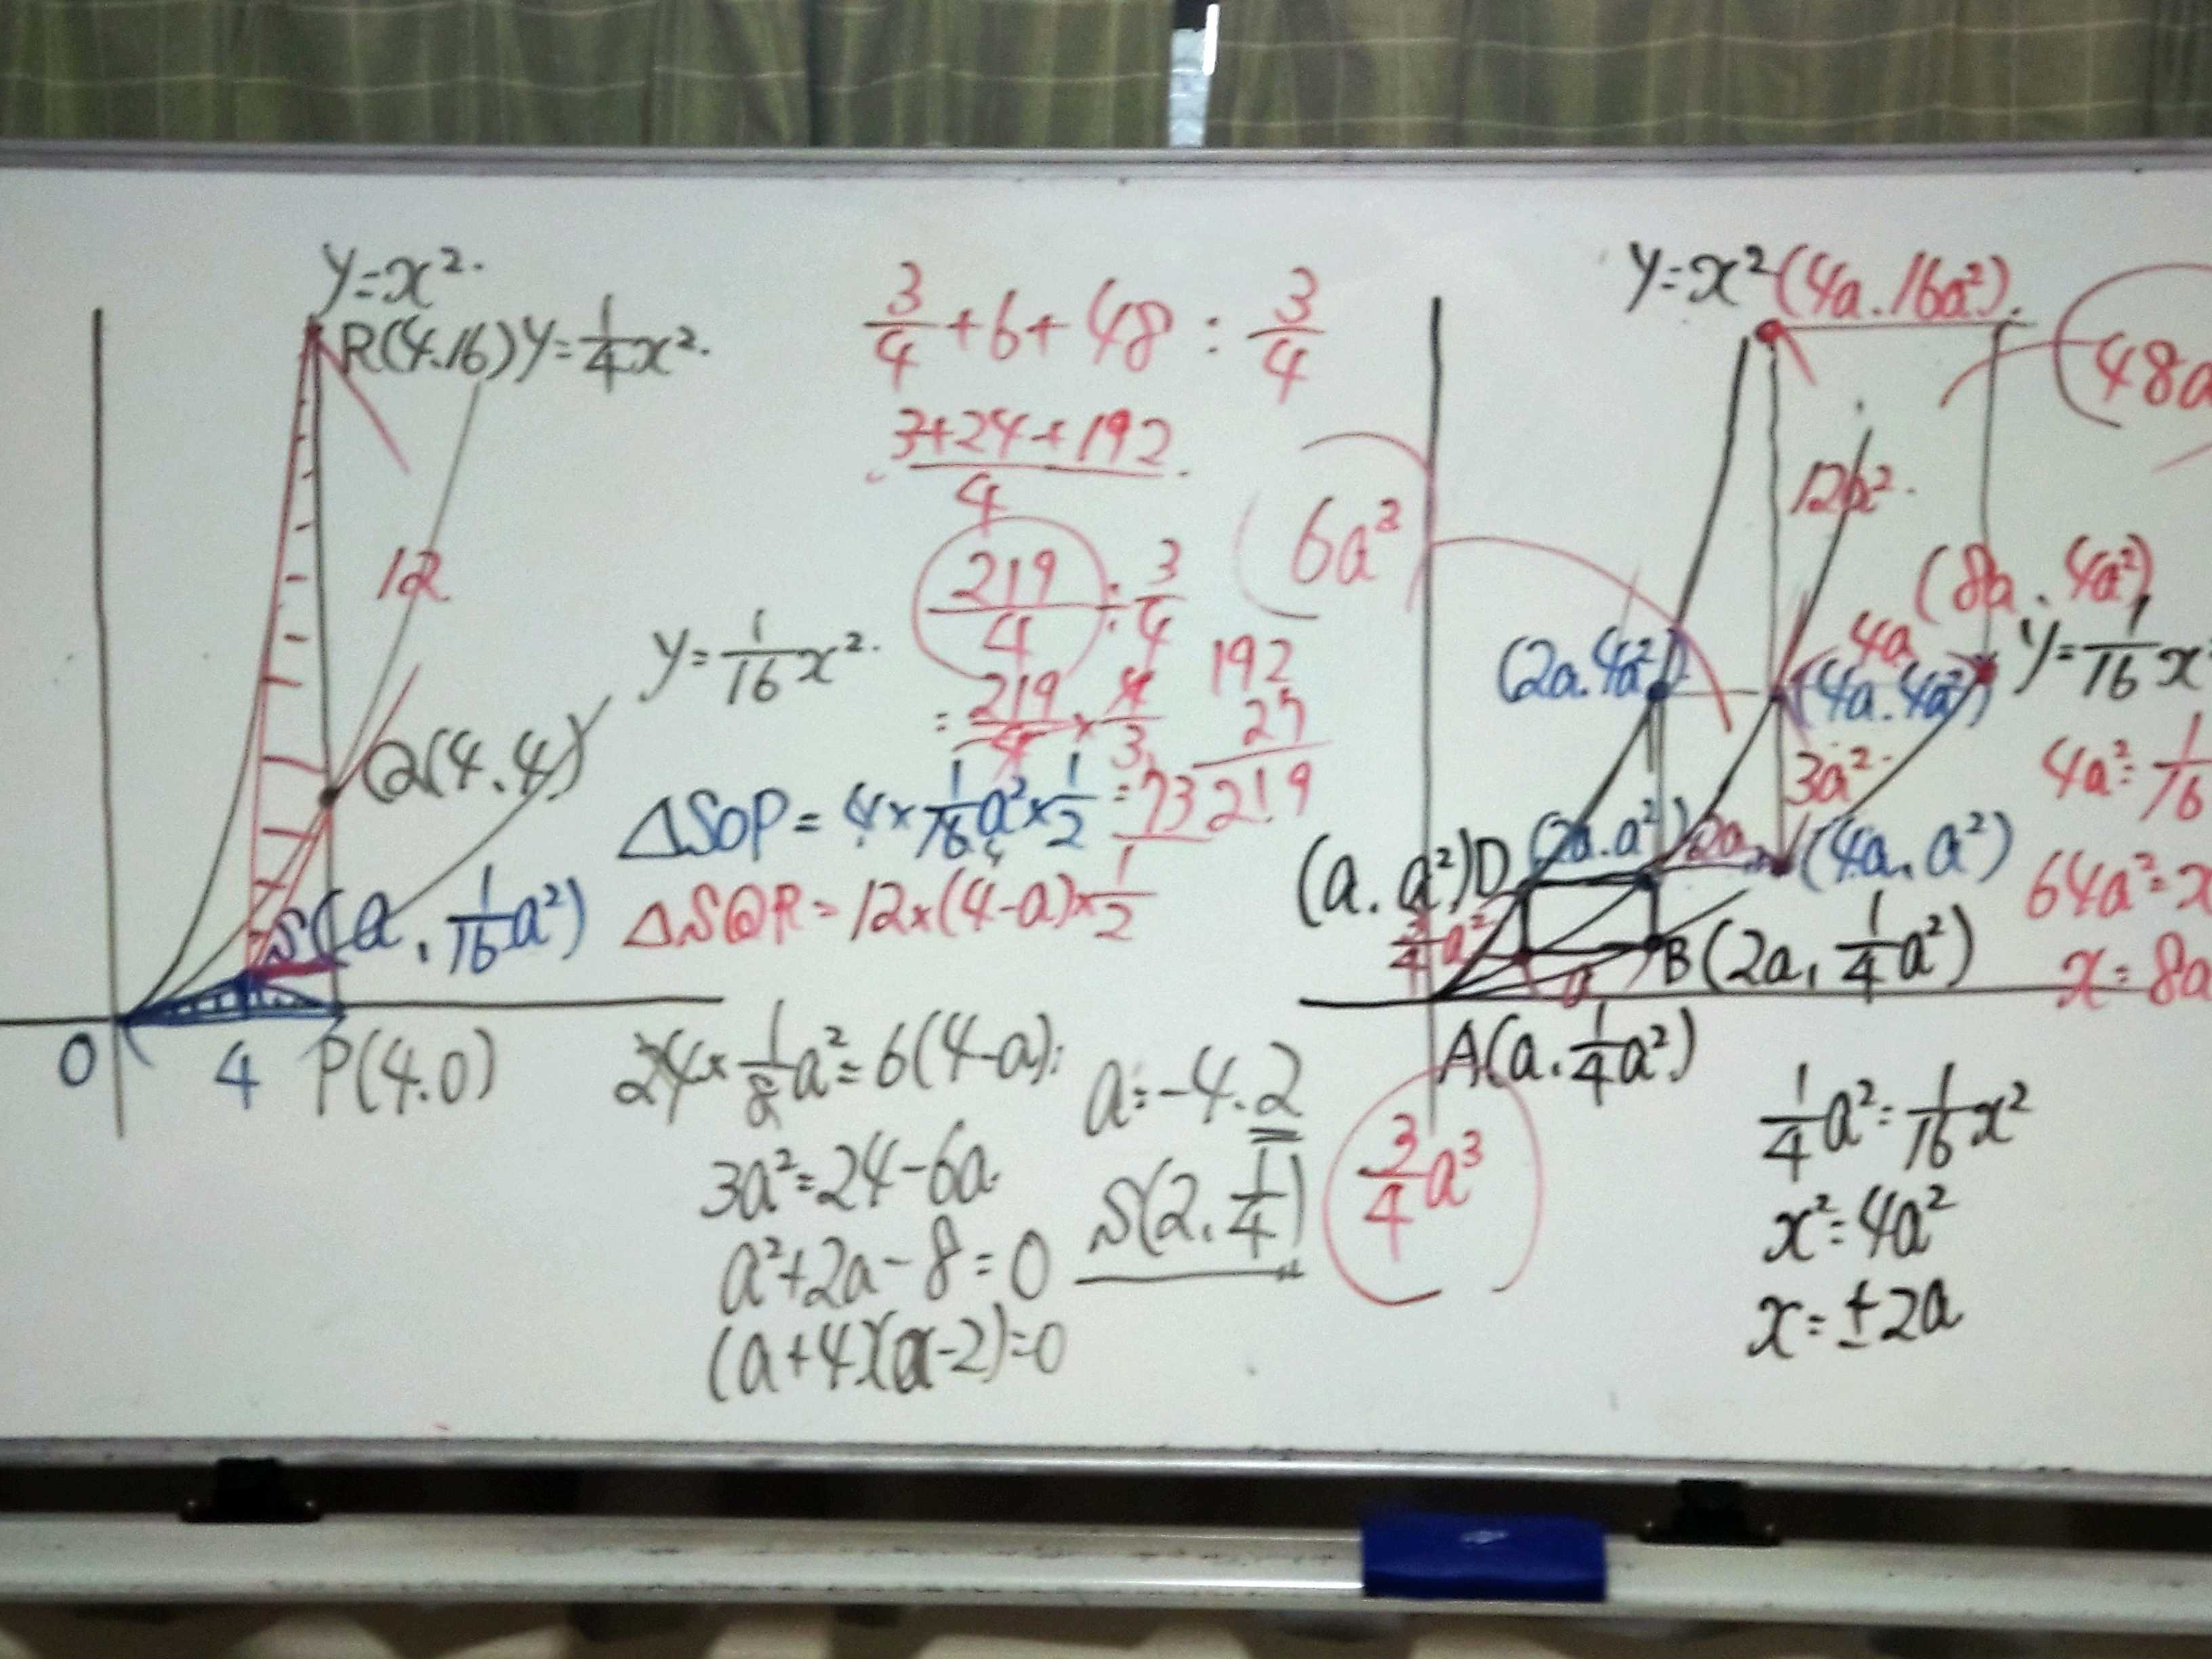 y=x².
R(4.16) y=1/4x².
12
y=1/16x².
Q(4.4)
S(a, 1/16a²)
0
4
P(4.0)
3/4+6+48 : 3/4
3+24+192/4
219/4 : 3/4
= 219/4 × 4/3
= 73
192
27
219
△SOP = 4×1/16a²×1/2
△SQR = 12×(4-a)×1/2
24× 1/8a² = 6(4-a)
3a² = 24-6a
a²+2a-8=0
(a+4)(a-2)=0
a=-4.2
S(2, 1/4)
y=x² (4a.16a²).
48a
12a².
6a³
(8a. 4a²)
(2a.4a²)
4a
(4a.4a²)
y=1/16x
3a².
(a. a²)D
(2a.a²)
2a
(4a, a²)
3/4a²
a
B(2a, 1/4a²)
A(a.1/4a²)
3/4a³
4a²=1/16
64a²=x
x=8a
1/4a²=1/16x²
x²=4a²
x=±2a